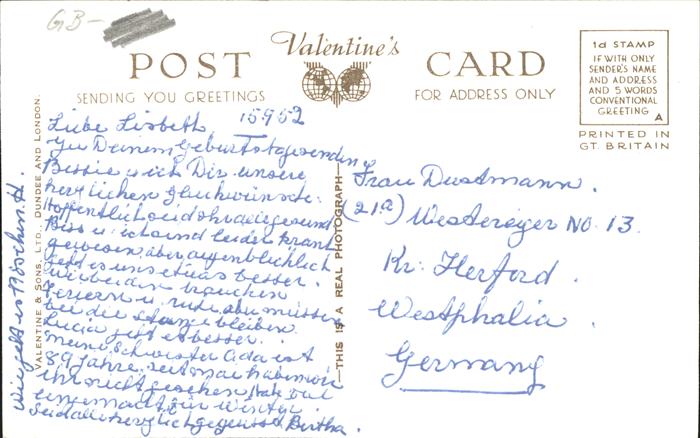 GB-
Valentine's
POST CARD
SENDING YOU GREETINGS
FOR ADDRESS ONLY
1d STAMP
IF WITH ONLY
SENDER'S NAME
AND ADDRESS
AND 5 WORDS
CONVENTIONAL
GREETING
A
PRINTED IN
GT. BRITAIN
VALENTINE & SONS, LTD., DUNDEE AND LONDON.
THIS IS A REAL PHOTOGRAPH
Liebe Lisbeth 15952
Zu Deinem Geburtstage senden
Bessie u ich Dir unsere
herzlichen Glückwünsche.
Hoffentlich seid ihr alle gesund
Biss u ich sind leider krank
gewesen, aber augenblicklich
geht es uns etwas besser.
wir beiden brauchen
Ferien u ruhe, aber müssen
bei der Stange bleiben.
Lucia geht es besser.
meine Schwester Ada ist
89 Jahre, seit mai haben wir
ihr nicht gesehen, Habe viel
eingemacht für winter.
Seid alle herzlich gegrüsst Bertha.
wie geht es
Frau Dustmann.
(21a) Westerenger No. 13.
Kr. Herford.
Westphalia.
Germany